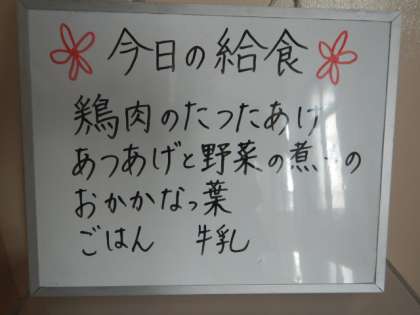 今日の給食
鶏肉のたつたあげ
あつあげと野菜の煮もの
おかかなっ葉
ごはん 牛乳